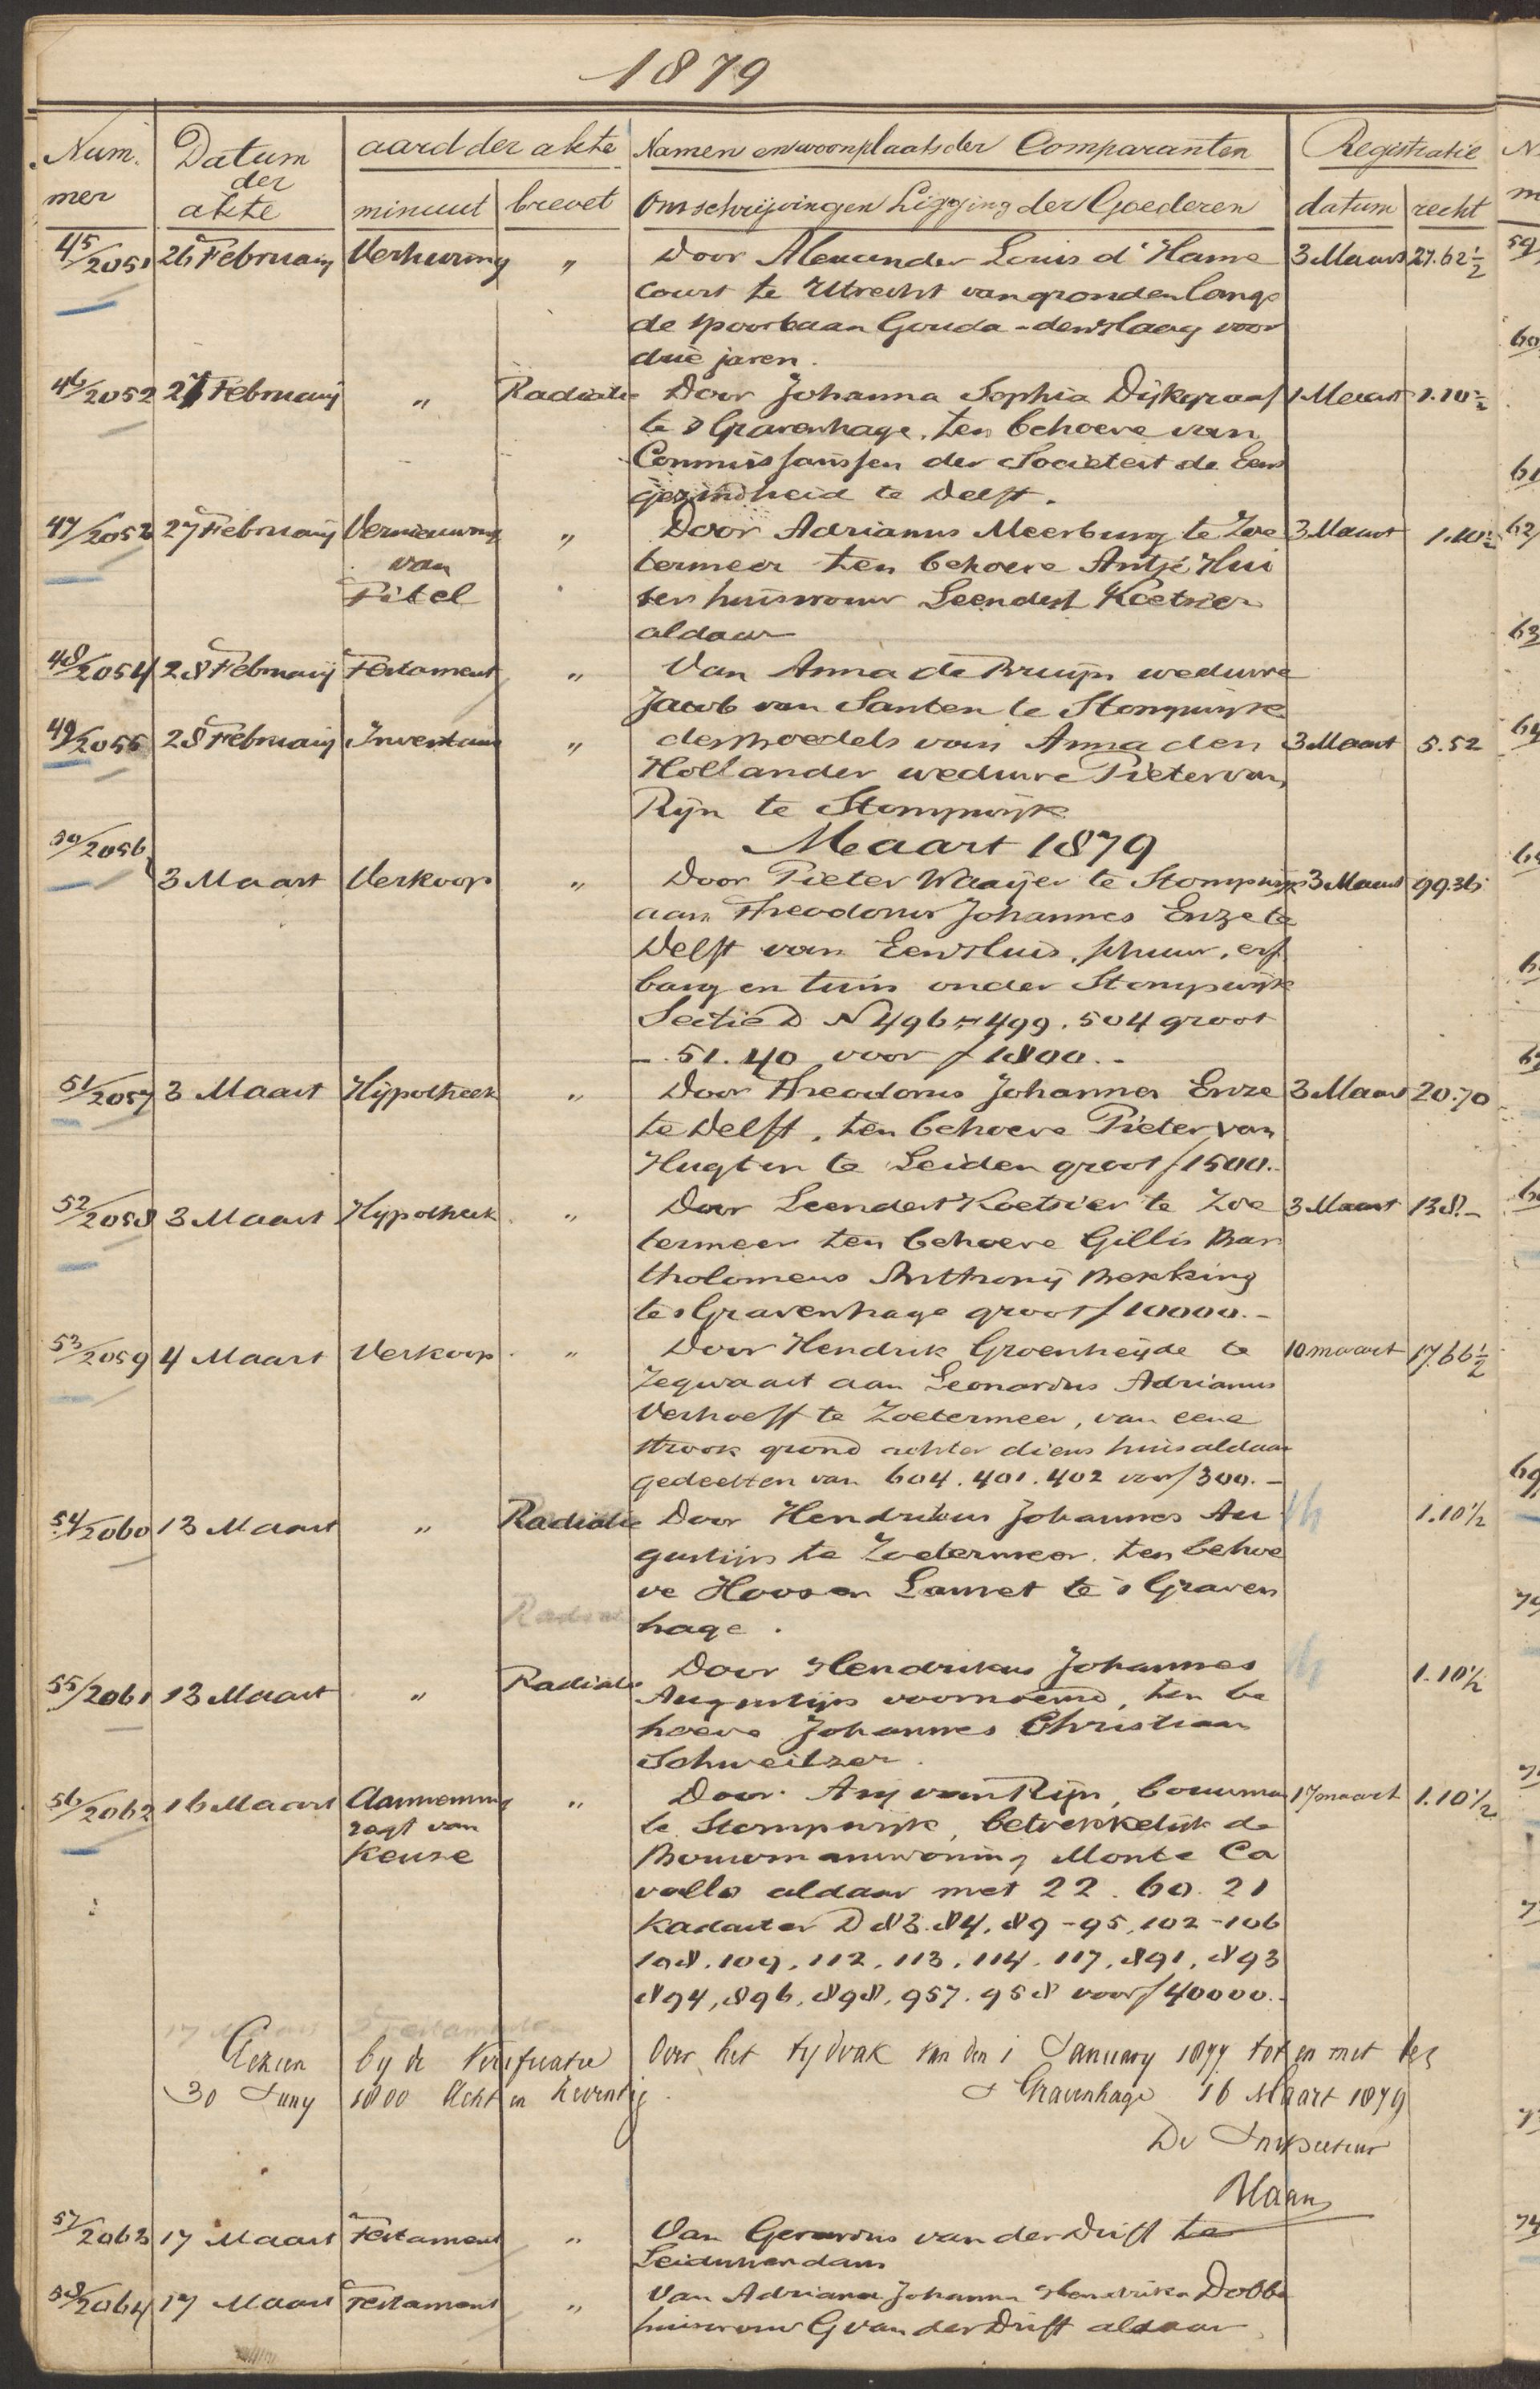 1879
Nummer Datum der akte aard der akte Namen en woonplaats der Comparanten Registratie
minuut brevet Omschrijvingen Ligging der Goederen datum recht
45/2051 26 Februarij Verhuring " Door Alexander Louis d'Hame 3 Maart 27.62½
court te Utrecht van gronden langs
de spoorbaan Gouda-den Haag voor
drie jaren.
46/2052 27 Februarij " Radiatie Door Johanna Sophia Dijkgraaf 1 Maart 1.10½
te 's Gravenhage, ten behoeve van
Commissarissen der Societeit de Eens
gezindheid te Delft.
47/2053 27 Februarij Vernieuwing " Door Adrianus Meerburg te Zoe 3 Maart 1.10½
van termeer ten behoeve Antje Hui
Titel ser huisvrouw Leendert Koetsier
aldaar
48/2054 28 Februarij Testament " Van Anna de Bruijn weduwe
Jacob van Santen te Stompwijk
49/2055 28 Februarij Inventaris " des boedels van Anna den 3 Maart 5.52
Hollander weduwe Pieter van
Rijn te Stompwijk
Maart 1879
50/2056 3 Maart Verkoop " Door Pieter Waaijer te Stompwijk 3 Maart 99.36
aan Theodorus Johannes Enze te
Delft van Een Huis, schuur, erf
barg en tuin onder Stompwijk
Sectie D N 496 = 499. 504 groot
-. 51. 40 voor f 1800.-
51/2057 3 Maart Hypotheek " Door Theodorus Johannes Enze 3 Maart 20.70
te Delft, ten behoeve Pieter van
Hugten te Leiden groot f 1500.-
52/2058 3 Maart Hypotheek " Door Leendert Koetsier te Zoe 3 Maart 138.-
termeer ten behoeve Gillis Bar
tholomeus Anthonij Bekking
te 's Gravenhage groot f 10000.-
53/2059 4 Maart Verkoop " Door Hendrik Groenheijde te 10 maart 17.66½
Zegwaart aan Leonardus Adrianus
Verhoeff te Zoetermeer, van eene
strook grond achter diens huis aldaar
gedeelten van 604. 401. 402 voor f 300.-
54/2060 13 Maart " Radiatie Door Hendrikus Johannes Au 1.10½
gustijn te Zoetermeer. ten behoe
ve Hoos en Lamet te 's Graven
hage.
55/2061 13 Maart " Radiatie Door Hendrikus Johannes 1.10½
Augustijn voornoemd, ten be
hoeve Johannes Christiaan
Schweitzer.
56/2062 16 Maart Aanneming " Door Arij van Rijn, bouwman 17 maart 1.10½
regt van te Stompwijk, betrekkelijk de
Keuze Bouwmanswoning Monte Ca
vallo aldaar met 22. 60. 21
Kadaster D 83. 84, 89-95, 102-106
108. 109. 112. 113. 114. 117. 891. 893
894, 896. 898. 957. 958 voor f 40000.-
Gezien bij de Verificatie over het tijdvak van den 1 January 1877 tot en met den
30 Juny 1800 Acht en Zeventig. 's Gravenhage 16 Maart 1879
De Inspecteur
57/2063 17 Maart Testament " Van Gerardus van der Drift te
Leidschendam
58/2064 17 Maart Testament " Van Adriana Johanna Hendrika Dobbe
huisvrouw G van der Drift aldaar